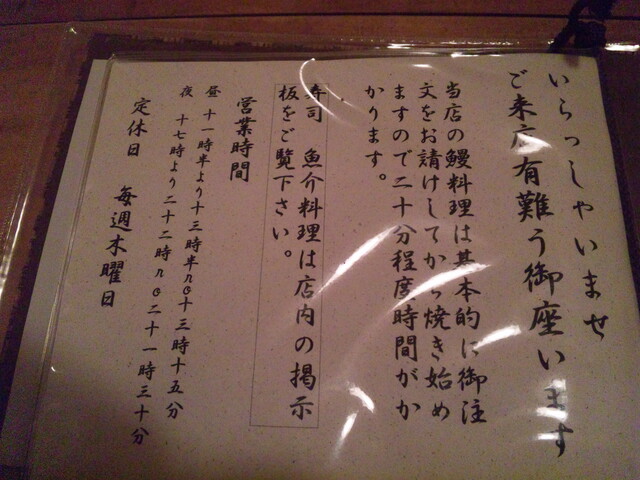 いらっしゃいませ
ご来店有難う御座います
当店の鰻料理は基本的に御注
文をお請けしてから焼き始め
ますので二十分程度時間がか
かります。
寿司 魚介料理は店内の掲示
板をご覧下さい。
営業時間
昼 十一時半より十三時半ro十三時十五分
夜 十七時より二十二時ro二十一時三十分
定休日 毎週木曜日